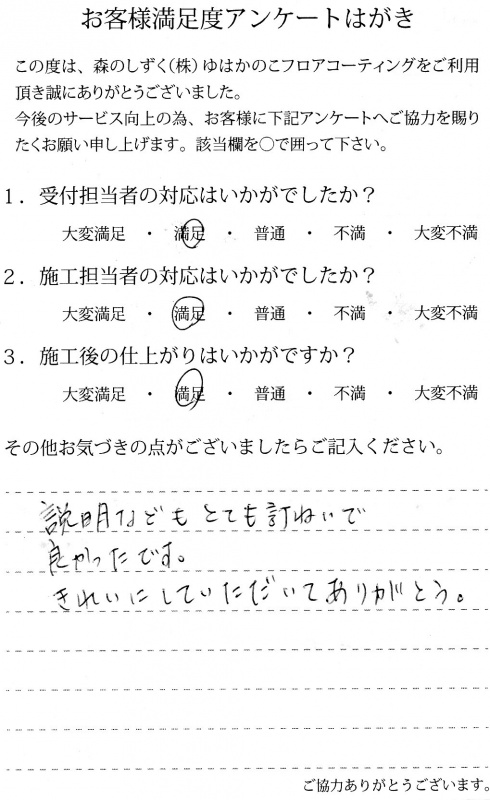 お客様満足度アンケートはがき
この度は、森のしずく(株)ゆはかのこフロアコーティングをご利用
頂き誠にありがとうございました。
今後のサービス向上の為、お客様に下記アンケートへご協力を賜り
たくお願い申し上げます。該当欄を○で囲って下さい。
1．受付担当者の対応はいかがでしたか？
大変満足 ・ 満足 ・ 普通 ・ 不満 ・ 大変不満
2．施工担当者の対応はいかがでしたか？
大変満足 ・ 満足 ・ 普通 ・ 不満 ・ 大変不満
3．施工後の仕上がりはいかがですか？
大変満足 ・ 満足 ・ 普通 ・ 不満 ・ 大変不満
その他お気づきの点がございましたらご記入ください。
説明などもとても訂ねいで
良かったです。
きれいにしていただいてありがとう。
ご協力ありがとうございます。